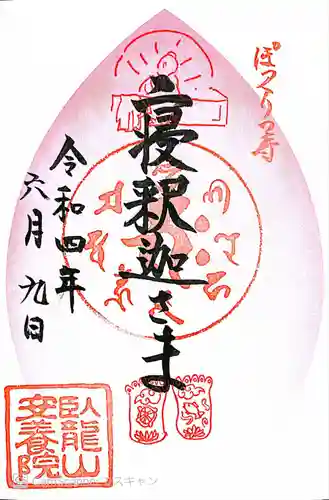 ぽっくり寺
寝釈迦さま
令和四年
六月九日
臥龍山
安養院
スキャン